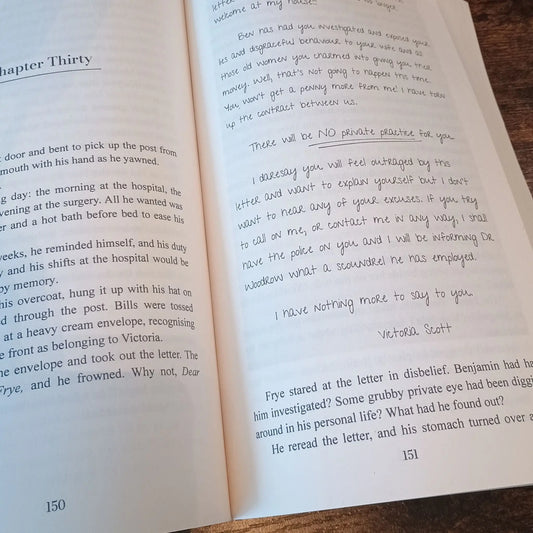 hapter Thirty
door and bent to pick up the post from
mouth with his hand as he yawned.
g day: the morning at the hospital, the
vening at the surgery. All he wanted was
er and a hot bath before bed to ease his
eeks, he reminded himself, and his duty
y and his shifts at the hospital would be
by memory.
his overcoat, hung it up with his hat on
d through the post. Bills were tossed
at a heavy cream envelope, recognising
e front as belonging to Victoria.
e envelope and took out the letter. The
Frye, and he frowned. Why not, Dear
150
letter
longer
welcome at my house.
Ben has had you investigated and exposed your
lies and disgraceful behaviour to your wife and as
those old women you charmed into giving you their
money. Well, that's not going to happen this time.
You won't get a penny more from me! I have torn
up the contract between us.
There will be NO private practice for you.
I daresay you will feel outraged by this
letter and want to explain yourself but I don't
want to hear any of your excuses. If you try
to call on me, or contact me in any way, I shall
have the police on you and I will be informing Dr
Woodrow what a scoundrel he has employed.
I have nothing more to say to you.
Victoria Scott
Frye stared at the letter in disbelief. Benjamin had ha
him investigated? Some grubby private eye had been diggi
around in his personal life? What had he found out?
He reread the letter, and his stomach turned over a
151